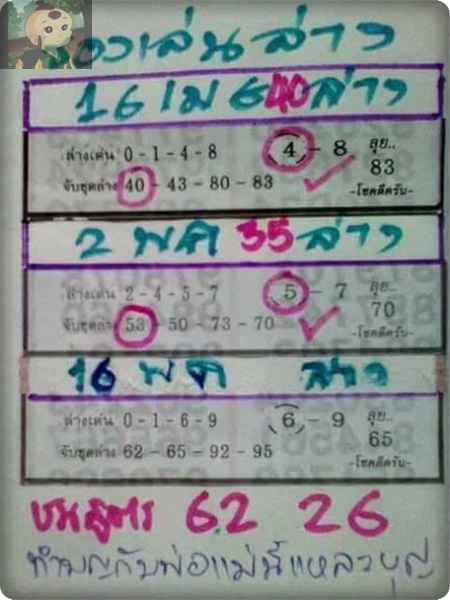 องเล่นล่าง
16 เม ย 40 ล่าง
ล่างเด่น 0 - 1 - 4 - 8 (4) - 8 ลุย..
83
จับชุดล่าง 40 - 43 - 80 - 83 -โชคดีครับ-
2 พค 35 ล่าง
ล่างเด่น 2 - 4 - 5 - 7 5 - 7 ลุย..
70
จับชุดล่าง 53 - 50 - 73 - 70 -โชคดีครับ-
16 พค ล่าง
ล่างเด่น 0 - 1 - 6 - 9 (6) - 9 ลุย..
65
จับชุดล่าง 62 - 65 - 92 - 95 -โชคดีครับ-
ชนสูตร 62 26
ทำบุญกับพ่อแม่นี้แหละบุญ